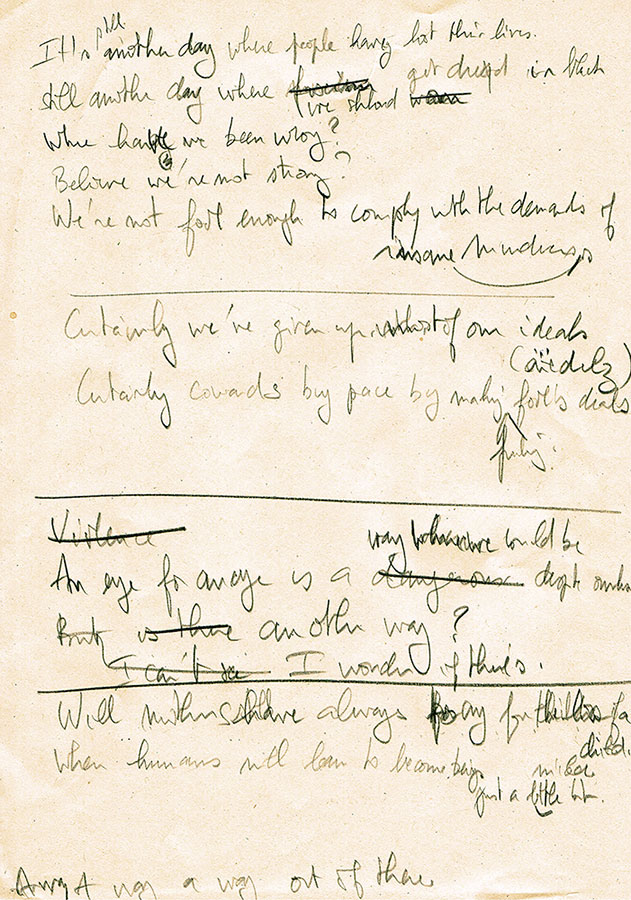 It's still another day where people having lost their lives.
still another day where we should get dressed in black
Where have we been wrong?
Believe we're not strong?
We're not fool enough to comply with the demands of
insane murderers
Certainly we've given up most of our ideals
Certainly cowards buy peace by making fool's deals
Violence
way behaviour could be
An eye for an eye is a dangerous despite
But is there another way?
I can't see I wonder if there's.
Will mothers have always cry for a
child.
When humans will learn to become beings
just a little bit.
A way a way out of there